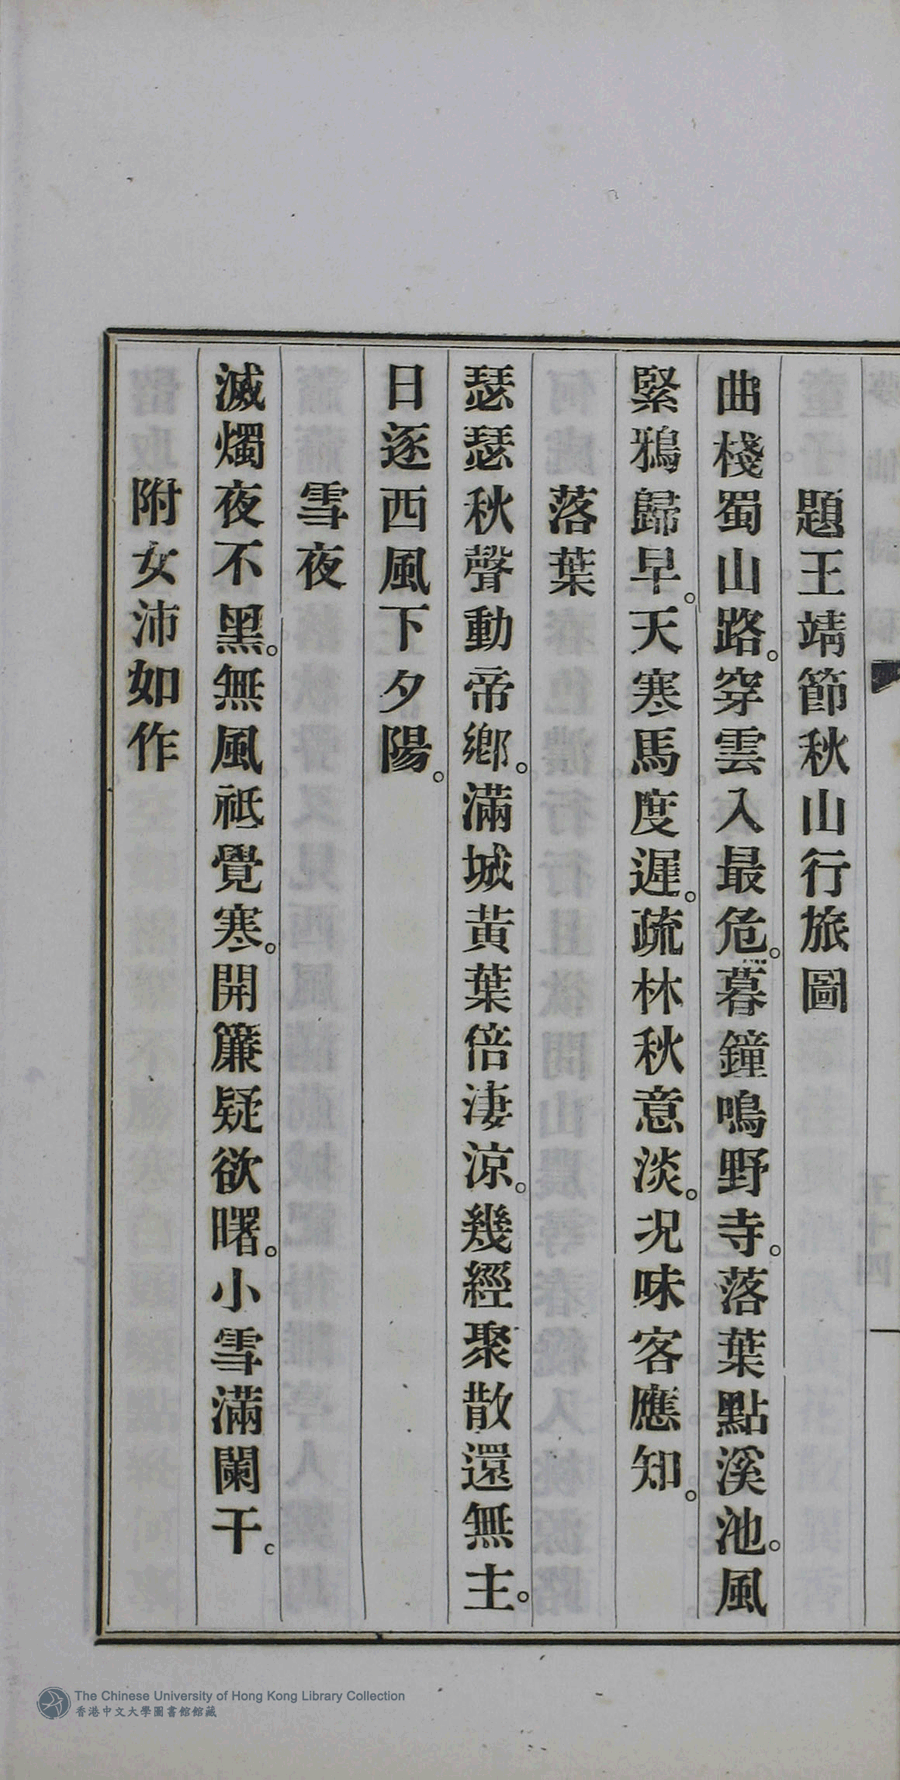 題王靖節秋山行旅圖
曲棧蜀山路。穿雲入最危。暮鐘鳴野寺。落葉點溪池。風
緊鴉歸早。天寒馬度遲。疏林秋意淡。况味客應知。
落葉
瑟瑟秋聲動帝鄉。滿城黃葉倍淒涼。幾經聚散還無主。
日逐西風下夕陽。
雪夜
滅燭夜不黑。無風祗覺寒。開簾疑欲曙。小雪滿闌干。
附女沛如作
The Chinese University of Hong Kong Library Collection
香港中文大學圖書館館藏